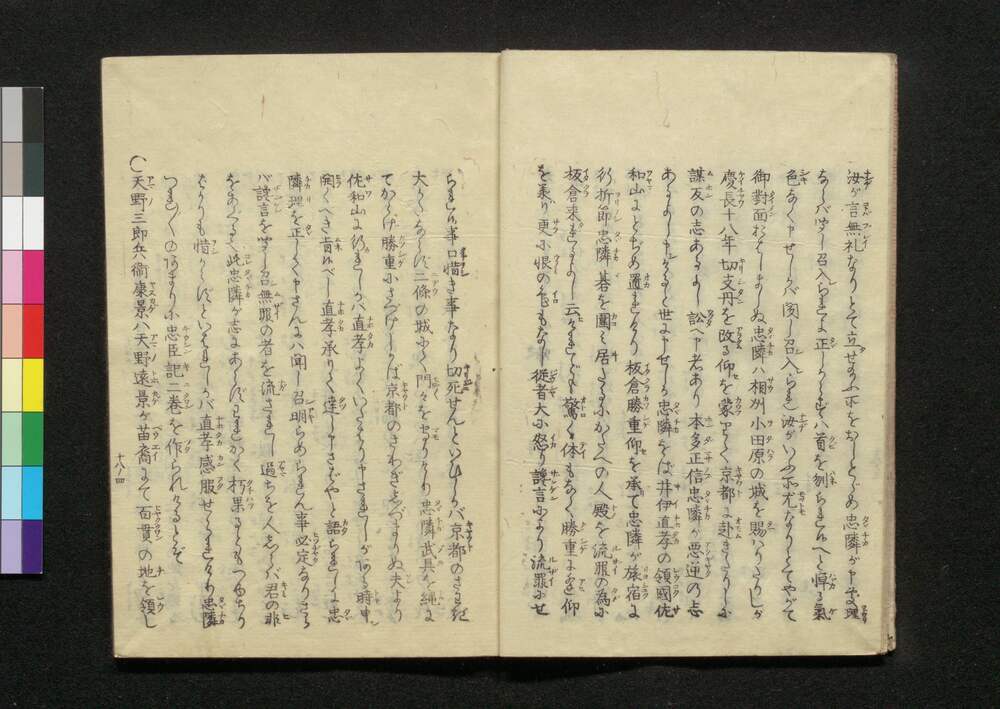 汝が言無礼なりとて立せ給ふ所をおしとゞめ忠隣が申処理
ならバ召入られよ正しからずバ首を刎られんへと悍る気
色なく申せしかバ聞し召入られ汝がいふ所尤なりとてやがて
御対面おはしましぬ忠隣ハ相州小田原の城を賜ハりたりしが
慶長十八年切支丹を改る仰を蒙りて京都に赴きたりしに
謀反の志あるよし訟へ申者あり本多正信忠隣が悪逆の志
あるよし申けると世に申せしが忠隣をば井伊直孝の領国佐
和山にとゞめ置れけり板倉勝重仰を承て忠隣が旅宿に
行折節忠隣碁を囲ミ居たるにかたへの人殿を流罪の為に
板倉来れるよし云けれども驚く体もなく勝重に逢仰
を承り更に恨の色もなし従者大に怒り讒言により流罪にせ
られん事口惜き事なり切死せんといひしかバ京都のさわぎ
大かたならず二條の城にて門々をまもりけり忠隣武具を縄に
てからげ勝重にさづけしかば京都のさわぎしづまりぬ夫より
佐和山に行れしかバ直孝よくいたハり申されしが或る時申
開くべき旨候べし直孝承りて達し申さばやと語られしに忠
隣理を正しく申さんにハ聞し召明らめられん事必定なりさら
バ讒言を聞し召無罪の者を流さるゝ過ちを人しらバ君の非
をあぐる也此忠隣が志にあらずわれかく朽果るともつゆちり
ばかりも惜からずといはれしかバ直孝感服せられけり忠隣
つれ〴〵のあまりに忠臣記二巻を作られけるとぞ
〇天野三郎兵衛康景ハ天野遠景が苗裔にて百貫の地を領し
十八ノ四